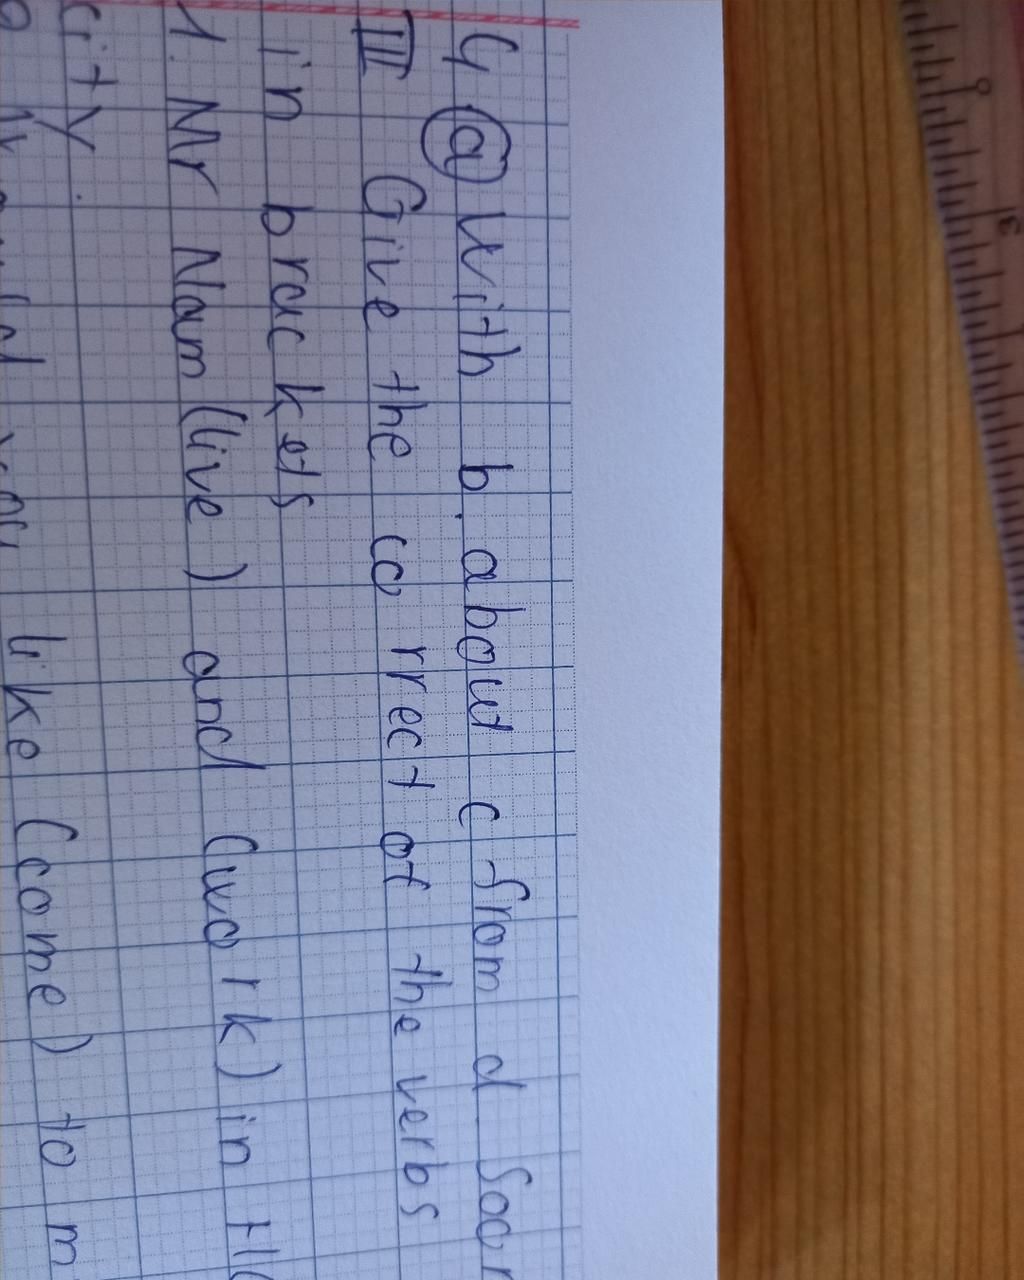 4 a with b. about c from d. for
III Give the correct of the verbs
in brackets
1. Mr Nam (live) and (work) in
city.
like (come) to